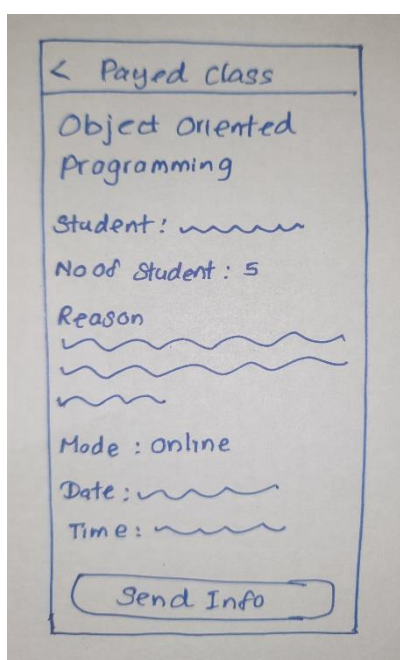 < Payed class
Object Oriented
Programming
Student:
No of Student : 5
Reason
Mode : Online
Date :
Time :
Send Info